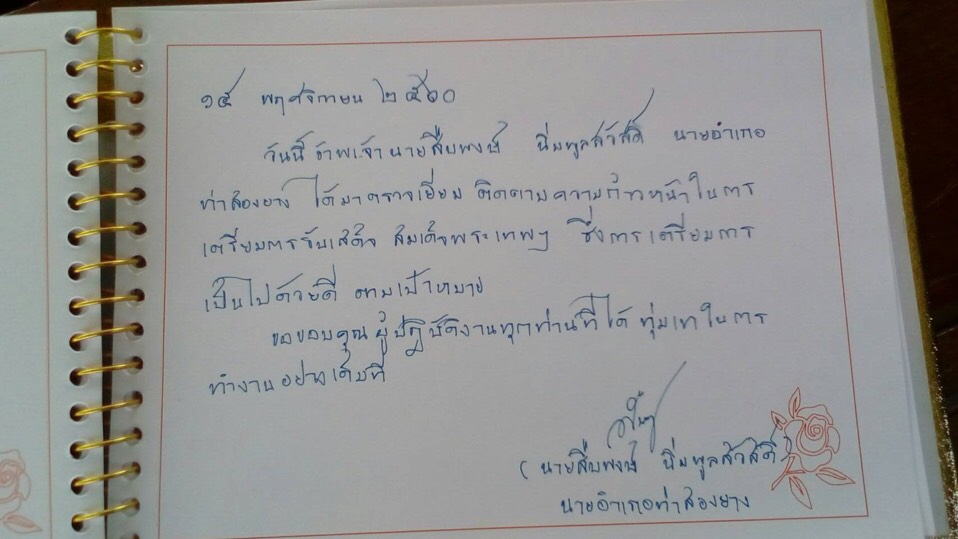 ๑๕ พฤศจิกายน ๒๕๖๐
วันนี้ ข้าพเจ้า นายสืบพงษ์ นิ่มพูลสวัสดิ์ นายอำเภอ
ท่าสองยาง ได้มาตรวจเยี่ยม ติดตามความก้าวหน้าในการ
เตรียมการรับเสด็จ สมเด็จพระเทพฯ ซึ่งการเตรียมการ
เป็นไปด้วยดี ตามเป้าหมาย
ขอขอบคุณ ผู้ปฏิบัติงานทุกท่านที่ได้ ทุ่มเทในการ
ทำงานอย่างเต็มที่
(นายสืบพงษ์ นิ่มพูลสวัสดิ์)
นายอำเภอท่าสองยาง